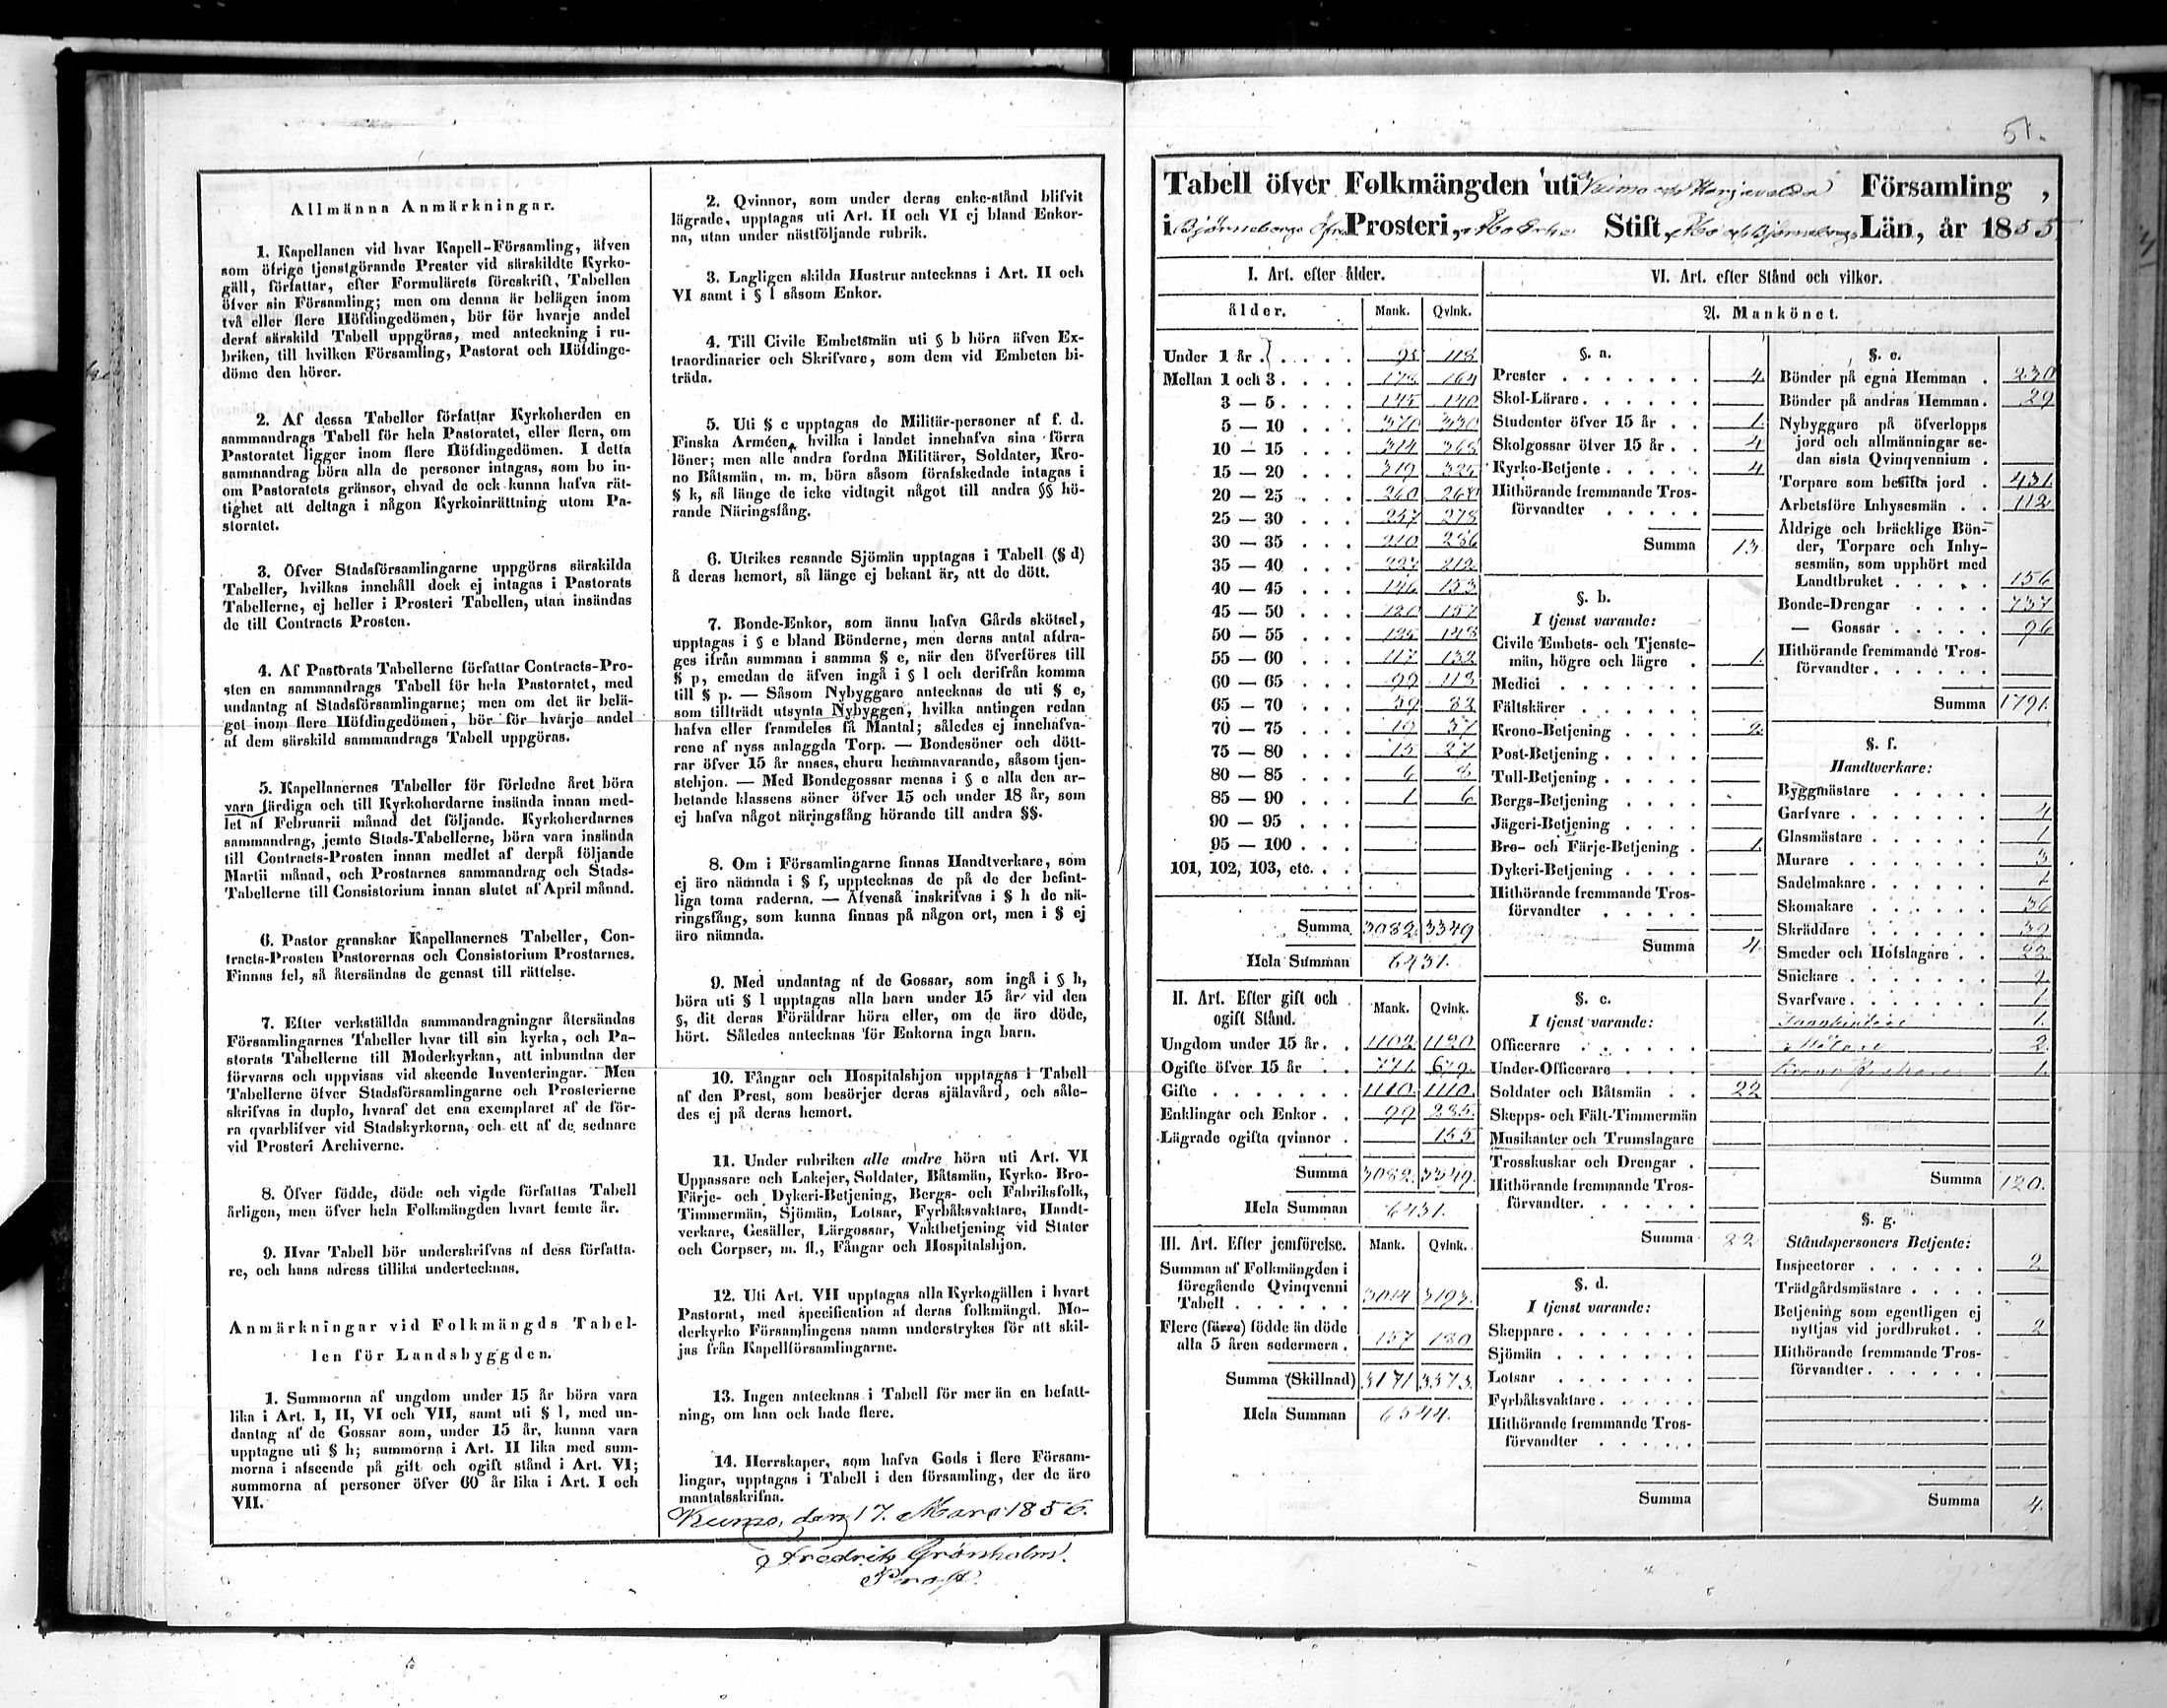 Allmänna Anmärkningar.
1. Kapellanen vid hvar Kapell-Församling, äfven
som öfrige tjenstgörande Prester vid särskildte Kyrko-
gäll, författar, efter Formulärets föreskrift, Tabellen
öfver sin Församling; men om denna är belägen inom
två eller flere Höfdingedömen, bör för hvarje andel
deraf särskild Tabell uppgöras, med anteckning i ru-
briken, till hvilken Församling, Pastorat och Höfdinge-
döme den hörer.
2. Af dessa Tabeller författar Kyrkoherden en
sammandrags Tabell för hela Pastoratet, eller flera, om
Pastoratet ligger inom flere Höfdingedömen. I detta
sammandrag böra alla de personer intagas, som bo in-
om Pastoratets gränsor, ehvad de ock kunna hafva rät-
tighet att deltaga i någon Kyrkoinrättning utom Pa-
storatet.
3. Öfver Stadsförsamlingarne uppgöras särskilda
Tabeller, hvilkas innehåll dock ej intagas i Pastorats
Tabellerne, ej heller i Prosteri Tabellen, utan insändas
de till Contracts Prosten.
4. Af Pastorats Tabellerne författar Contracts-Pro-
sten en sammandrags Tabell för hela Pastoratet, med
undantag af Stadsförsamlingarne; men om det är belä-
get inom flere Höfdingedömen, bör för hvarje andel
af dem särskild sammandrags Tabell uppgöras.
5. Kapellanernes Tabeller för förledne året böra
vara färdiga och till Kyrkoherdarne insända innan med-
let af Februarii månad det följande. Kyrkoherdarnes
sammandrag, jemte Stads-Tabellerne, böra vara insända
till Contracts-Prosten innan medlet af derpå följande
Martii månad, och Prostarnes sammandrag och Stads-
Tabellerne till Consistorium innan slutet af April månad.
6. Pastor granskar Kapellanernes Tabeller, Con-
tracts-Prosten Pastorernas och Consistorium Prostarnes.
Finnas fel, så återsändas de genast till rättelse.
7. Efter verkställda sammandragningar återsändas
Församlingarnes Tabeller hvar till sin kyrka, och Pa-
storats Tabellerne till Moderkyrkan, att inbundna der
förvaras och uppvisas vid skeende Inventeringar. Men
Tabellerne öfver Stadsförsamlingarne och Prosterierne
skrifvas in duplo, hvaraf det ena exemplaret af de för-
ra qvarblifver vid Stadskyrkorna, och ett af de sednare
vid Prosteri Archiverne.
8. Öfver födde, döde och vigde författas Tabell
årligen, men öfver hela Folkmängden hvart femte år.
9. Hvar Tabell bör underskrifvas af dess författa-
re, och hans adress tillika undertecknas.
Anmärkningar vid Folkmängds Tabel-
len för Landsbyggden.
1. Summorna af ungdom under 15 år böra vara
lika i Art. I, II, VI och VII, samt uti § l, med un-
dantag af de Gossar som, under 15 år, kunna vara
upptagne uti § h; summorna i Art. II lika med sum-
morna i afseende på gift och ogift stånd i Art. VI;
summorna af personer öfver 60 år lika i Art. I och
VII.
2. Qvinnor, som under deras enke-stånd blifvit
lägrade, upptagas uti Art. II och VI ej bland Enkor-
na, utan under nästföljande rubrik.
3. Lagligen skilda Hustrur antecknas i Art. II och
VI samt i § l såsom Enkor.
4. Till Civile Embetsmän uti § b höra äfven Ex-
traordinarier och Skrifvare, som dem vid Embeten bi-
träda.
5. Uti § c upptagas de Militär-personer af f. d.
Finska Arméen, hvilka i landet innehafva sina förra
löner; men alle andra fordna Militärer, Soldater, Kro-
no Båtsmän, m. m. böra såsom förafskedade intagas i
§ k, så länge de icke vidtagit något till andra §§ hö-
rande Näringsfång.
6. Utrikes resande Sjömän upptagas i Tabell (§ d)
å deras hemort, så länge ej bekant är, att de dött.
7. Bonde-Enkor, som ännu hafva Gårds skötsel,
upptagas i § e bland Bönderne, men deras antal afdra-
ges ifrån summan i samma § e, när den öfverföres till
§ p, emedan de äfven ingå i § l och derifrån komma
till § p. — Såsom Nybyggare antecknas de uti § e,
som tillträdt utsynta Nybyggen, hvilka antingen redan
hafva eller framdeles få Mantal; således ej innehafva-
rene af nyss anlaggda Torp. — Bondesöner och dött-
rar öfver 15 år anses, churu hemmavarande, såsom tjen-
stehjon. — Med Bondegossar menas i § e alla den ar-
betande klassens söner öfver 15 och under 18 år, som
ej hafva något näringsfång hörande till andra §§.
8. Om i Församlingarne finnas Handtverkare, som
ej äro nämnda i § f, upptecknas de på de der befint-
liga toma raderna. — Äfvenså inskrifvas i § h de nä-
ringsfång, som kunna finnas på någon ort, men i § ej
äro nämnda.
9. Med undantag af de Gossar, som ingå i § h,
böra uti § l upptagas alla barn under 15 år vid den
§, dit deras Föräldrar höra eller, om de äro döde,
hört. Således antecknas för Enkorna inga barn.
10. Fångar och Hospitalshjon upptagas i Tabell
af den Prest, som besörjer deras själavård, och såle-
des ej på deras hemort.
11. Under rubriken alle andre höra uti Art. VI
Uppassare och Lakejer, Soldater, Båtsmän, Kyrko- Bro-
Färje- och Dykeri-Betjening, Bergs- och Fabriksfolk,
Timmermän, Sjömän, Lotsar, Fyrbåksvaktare, Handt-
verkare, Gesäller, Lärgossar, Vaktbetjening vid Stater
och Corpser, m. fl., Fångar och Hospitalshjon.
12. Uti Art. VII upptagas alla Kyrkogällen i hvart
Pastorat, med specification af deras folkmängd. Mo-
derkyrko Församlingens namn understrykes för att skil-
jas från Kapellförsamlingarne.
13. Ingen antecknas i Tabell för mer än en befatt-
ning, om han ock hade flere.
14. Herrskaper, som hafva Gods i flere Försam-
lingar, upptagas i Tabell i den församling, der de äro
mantalsskrifna.
Kumo, den 17. Mars 1856.
Fredrik Grönholm.
Prost.
51.
Tabell öfver Folkmängden uti Kumo och Harjavalda Församling,
i Björneborgs Öfre Prosteri, Åbo Erke Stift, Åbo och Björneborgs Län, år 1855
I. Art. efter ålder.
ålder. Mank. Qvink.
Under 1 år . . . . 118
Mellan 1 och 3 . . . . 164
3 — 5 . . . . 145 140
5 — 10 . . . 370 330
10 — 15 . . . 314 368
15 — 20 . . . 319 325
20 — 25 . . . 260 268
25 — 30 . . . 257 278
30 — 35 . . . 210 236
35 — 40 . . . 212
40 — 45 . . . 146 153
45 — 50 . . . 120 157
50 — 55 . . . 125 148
55 — 60 . . . 117 132
60 — 65 . . . 99 113
65 — 70 . . . 59 82
70 — 75 . . . 19 37
75 — 80 . . . 15 27
80 — 85 . . . 6 8
85 — 90 . . . 1 6
90 — 95 . . .
95 — 100 . . .
101, 102, 103, etc. . .
Summa 3082. 3349
Hela Summan 6431.
II. Art. Efter gift och
ogift Stånd. Mank. Qvink.
Ungdom under 15 år . . 1102. 1120
Ogifte öfver 15 år . . 771. 679.
Gifte . . . . . . 1110. 1110.
Enklingar och Enkor . . 99 285.
Lägrade ogifta qvinnor . 155
Summa 3082. 3349.
Hela Summan 6431.
III. Art. Efter jemförelse. Mank. Qvink.
Summan af Folkmängden i
föregående Qvinqvenni
Tabell . . . . . . 3014 3193.
Flere (färre) födde än döde
alla 5 åren sedermera . 157 180
Summa (Skillnad) 3171 3373.
Hela Summan 6544.
VI. Art. efter Stånd och vilkor.
A. Mankönet.
§. a.
Prester . . . . . . . 4
Skol-Lärare . . . . . .
Studenter öfver 15 år . . 1.
Skolgossar öfver 15 år . . 4
Kyrko-Betjente . . . . . 4
Hithörande fremmande Tros-
förvandter . . . . .
Summa 13.
§. b.
I tjenst varande:
Civile Embets- och Tjenste-
män, högre och lägre . 1.
Medici . . . . . . .
Fältskärer . . . . . .
Krono-Betjening . . . . 2.
Post-Betjening . . . . .
Tull-Betjening . . . . .
Bergs-Betjening . . . .
Jägeri-Betjening . . . .
Bro- och Färje-Betjening . 1.
Dykeri-Betjening . . . .
Hithörande fremmande Tros-
förvandter . . . . .
Summa 4.
§. c.
I tjenst varande:
Officerare . . . . . .
Under-Officerare . . . .
Soldater och Båtsmän . . 22
Skepps- och Fält-Timmermän
Musikanter och Trumslagare
Trosskuskar och Drengar .
Hithörande fremmande Tros-
förvandter . . . . . .
Summa 22
§. d.
I tjenst varande:
Skeppare . . . . . . .
Sjömän . . . . . . .
Lotsar . . . . . . .
Fyrbåksvaktare . . . . .
Hithörande fremmande Tros-
förvandter . . . . .
Summa
§. e.
Bönder på egna Hemman . 230
Bönder på andras Hemman . 29
Nybyggare på öfverlopps
jord och allmänningar se-
dan sista Qvinqvennium .
Torpare som besitta jord . 431.
Arbetsföre Inhysesmän . . 112
Åldrige och bräcklige Bön-
der, Torpare och Inhy-
sesmän, som upphört med
Landtbruket . . . . . 156
Bonde-Drengar . . . . 737
— Gossar . . . . . 96
Hithörande fremmande Tros-
förvandter . . . . . .
Summa 1791.
§. f.
Handtverkare:
Byggmästare . . . . .
Garfvare . . . . . . 4
Glasmästare . . . . . . 1
Murare . . . . . . . 3
Sadelmakare . . . . . .
Skomakare . . . . . . 36
Skräddare . . . . . . 39
Smeder och Hofslagare . .
Snickare . . . . . . . 2.
Svarfvare . . . . . . . 1.
1.
Målare 2.
1.
Summa 120.
§. g.
Ståndspersoners Betjente:
Inspectorer . . . . . . 2
Trädgårdsmästare . . . .
Betjening som egentligen ej
nyttjas vid jordbruket . . 2
Hithörande fremmande Tros-
förvandter . . . . . .
Summa 4.